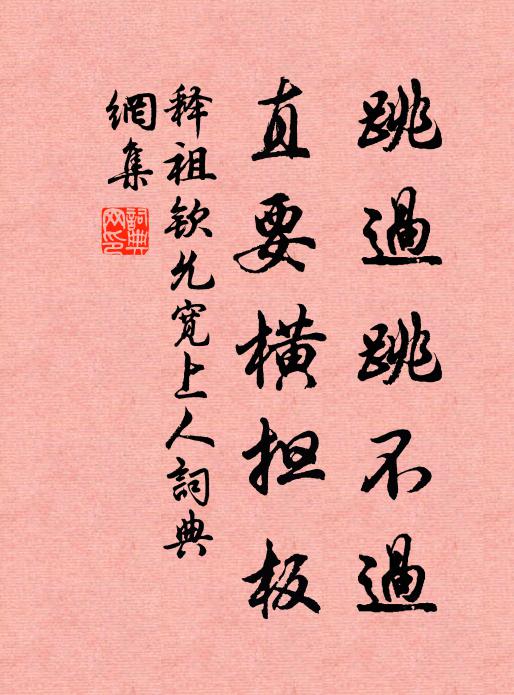 跳過跳不過
直要橫担板
释祖钦允寬上人詞典
網集
詞典网印